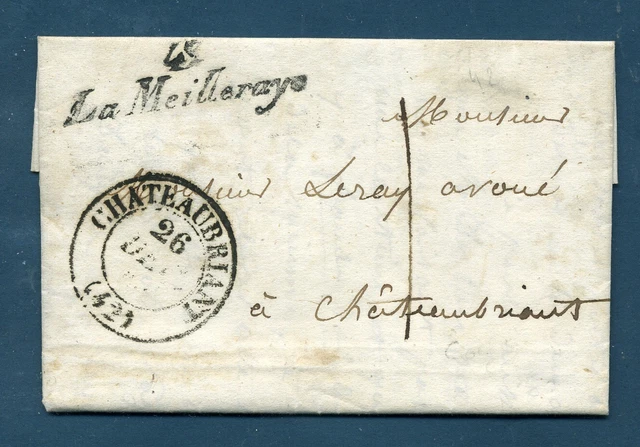 La Meilleraye
Monsieur
Monsieur Leray avoué
à Châteaubriant
CHATEAUBRIANT
26
(42)
1